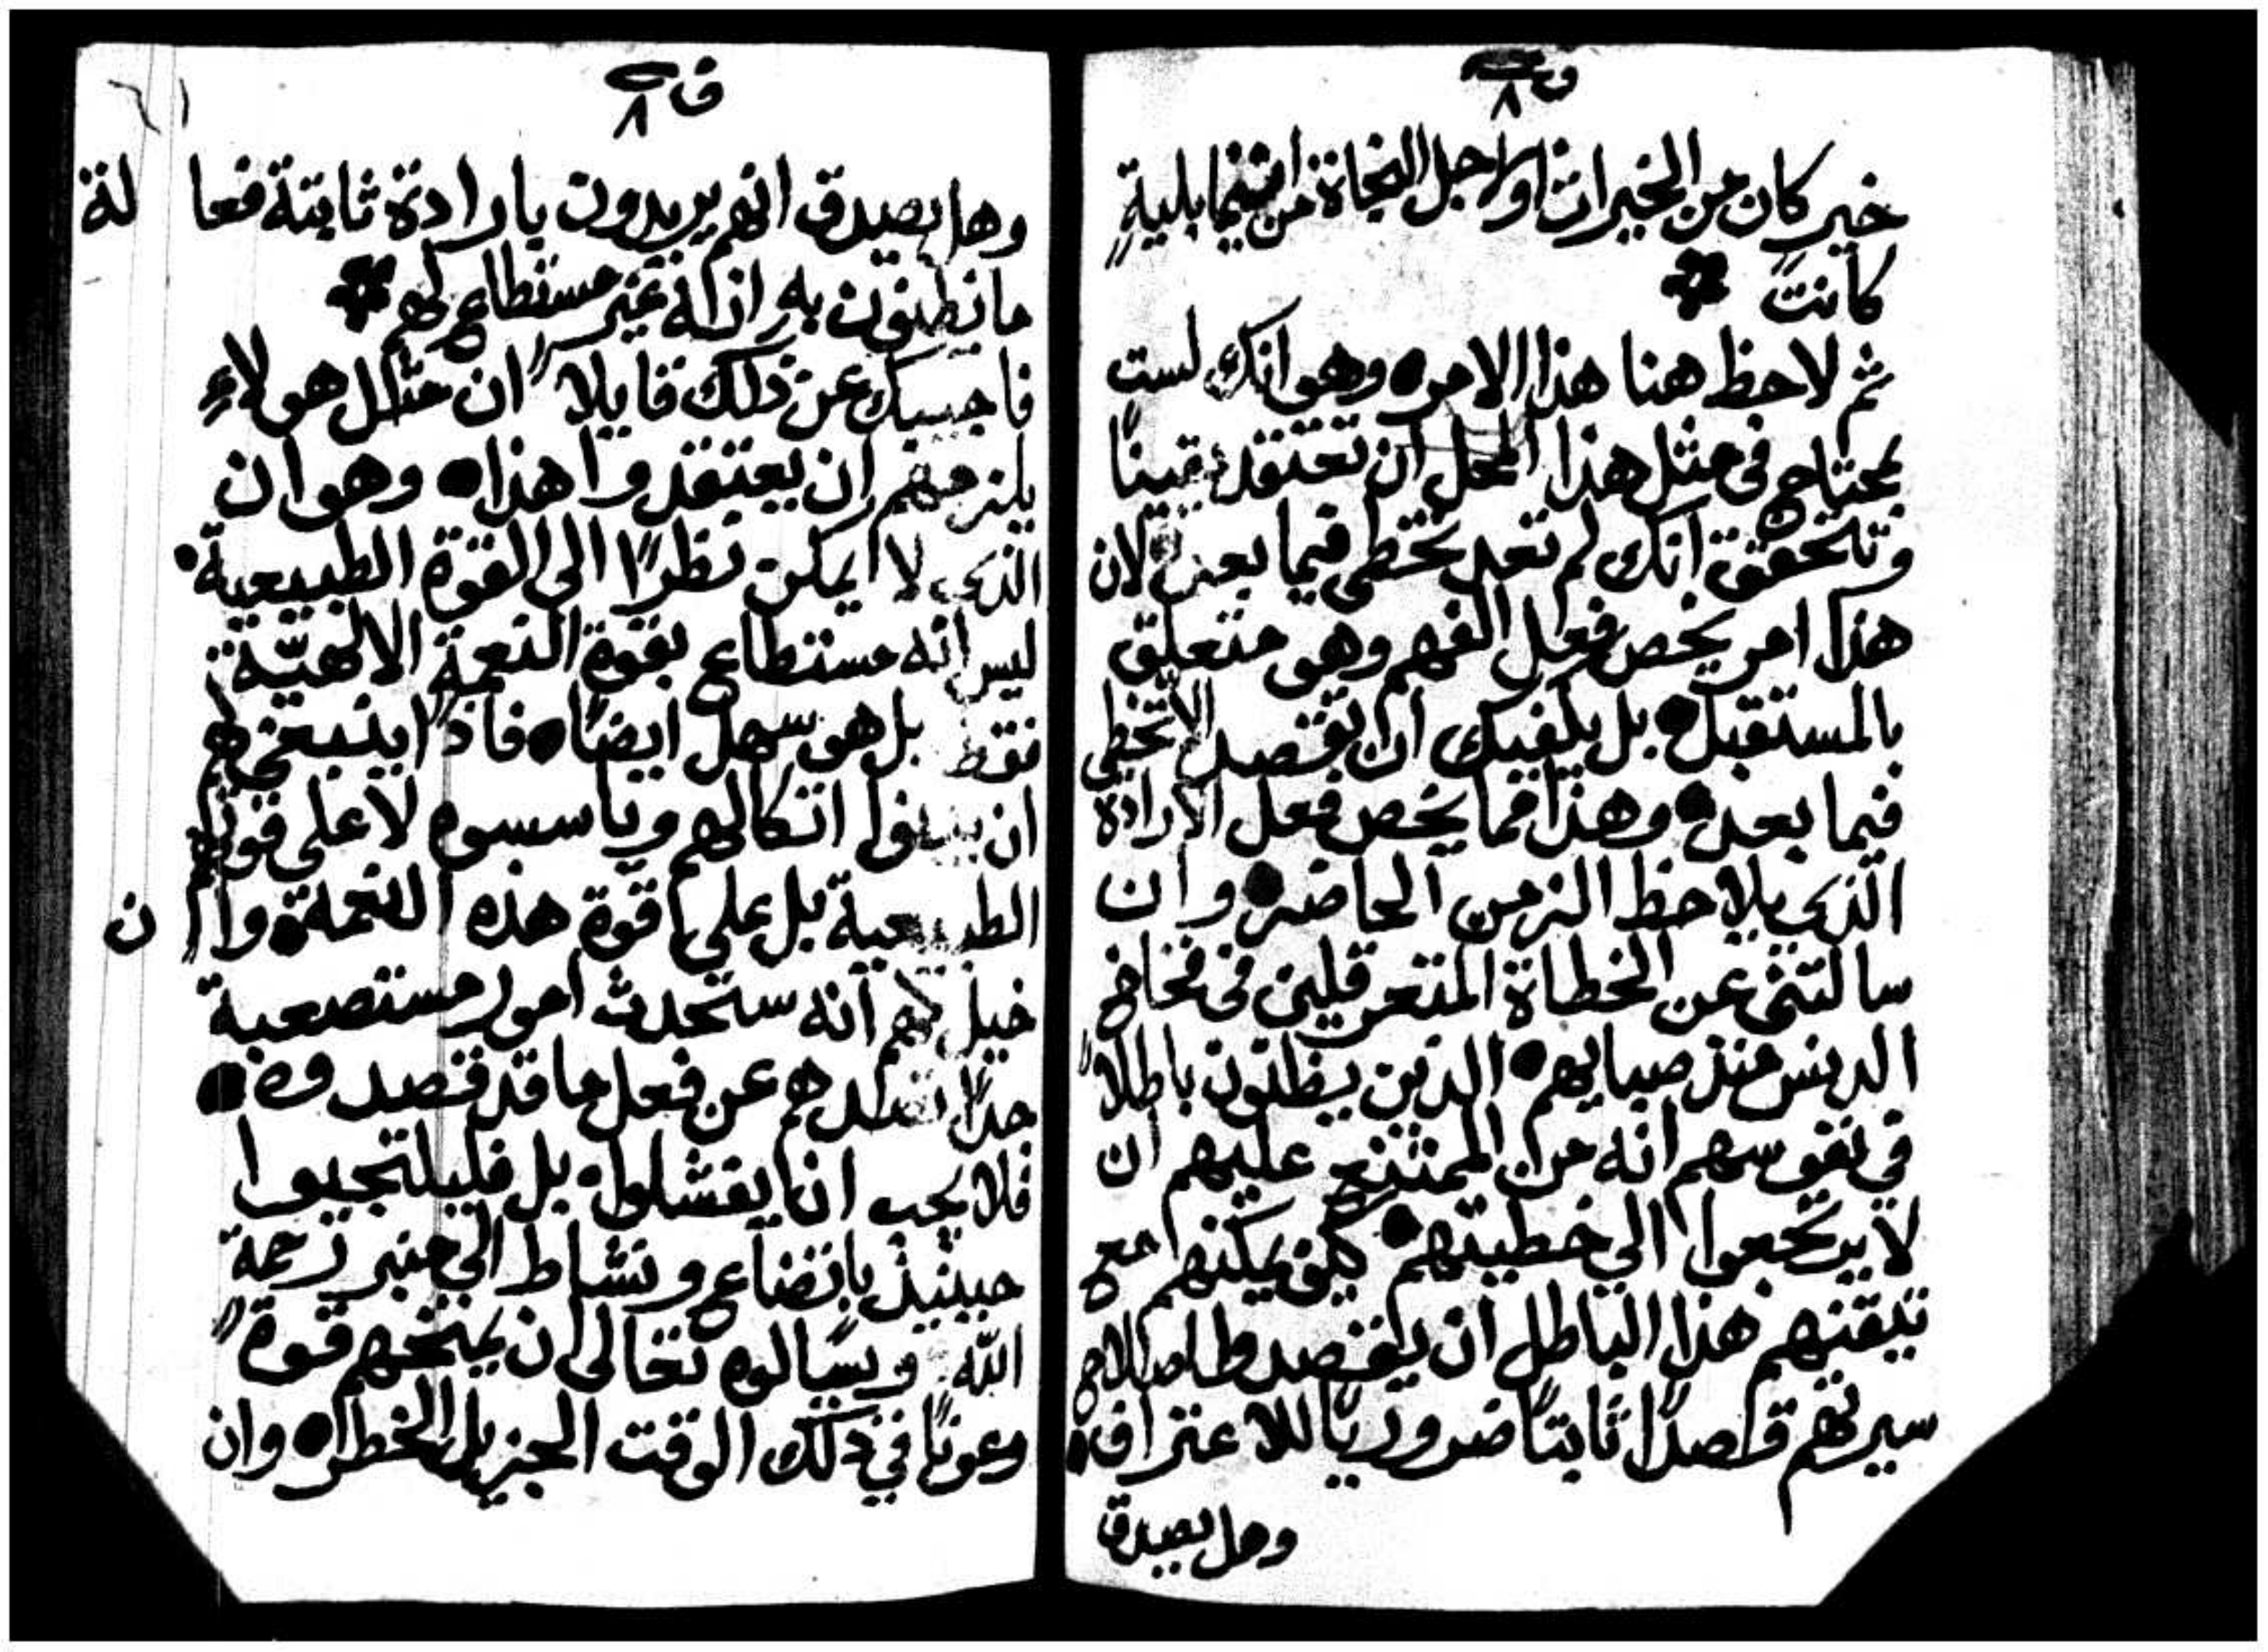 ف ٨
خير كان من الخيرات اولاجل النجاة من ايتما بلية
كانت
ثم لاحظ هنا هذا الامر وهو انك لست
بمحتاج في مثل هذا المحل ان تعتقد يقينًا
وتتحقق انك لم تعد تخطي فيما بعد لان
هذا امر يخص فعل الفهم وهو متعلق
بالمستقبل بل يكفيك ان تقصد الا تخطي
فيما بعد وهذا مما يخص فعل الارادة
الذي يلاحظ الزمن الحاضر وان
سالتني عن الخطاة المتعرقلين في فخاخ
الدنس منذ صبايهم الذين يظنون باطلاً
في نفوسهم انه من الممتنع عليهم ان
لا يرتجعوا الي خطيتهم كيف يمكنهم مع
تيقنهم هذا الباطل ان يقصدوا اصلاح
سيرتهم قصدًا ثابتًا ضروريًا للاعتراف
وهل يصدق
ف ٨
٦١
وهل يصدق انهم يريدون بارادة ثابتة فعالة
ما يظنون به انه غير مستطاع لهم
فاجيبك عن ذلك قايلاً ان مثل هولاء
يلزمهم ان يعتقدوا هذا وهو ان
الذي لا يمكن نظرًا الى القوة الطبيعية
ليس انه مستطاع بقوة النعمة الالهيّة
فقط بل هو سهل ايضًا فاذًا ينبغي لهم
ان يبنوا اتكالهم وياسسوه لا على قوتهم
الطبيعية بل على قوة هذه النعمة وان
خيل لهم انه ستحدث امور مستصعبة
جدًا تصدهم عن فعل ما قد قصدوه
فلا يجب ان يفشلوا بل فليلتجيوا
حينيذٍ باتضاع ونشاط الي منبر رحمة
الله ويسالوه تعالى ان يمنحهم قوةً
وعونًا في ذلك الوقت الجزيل الخطر وان